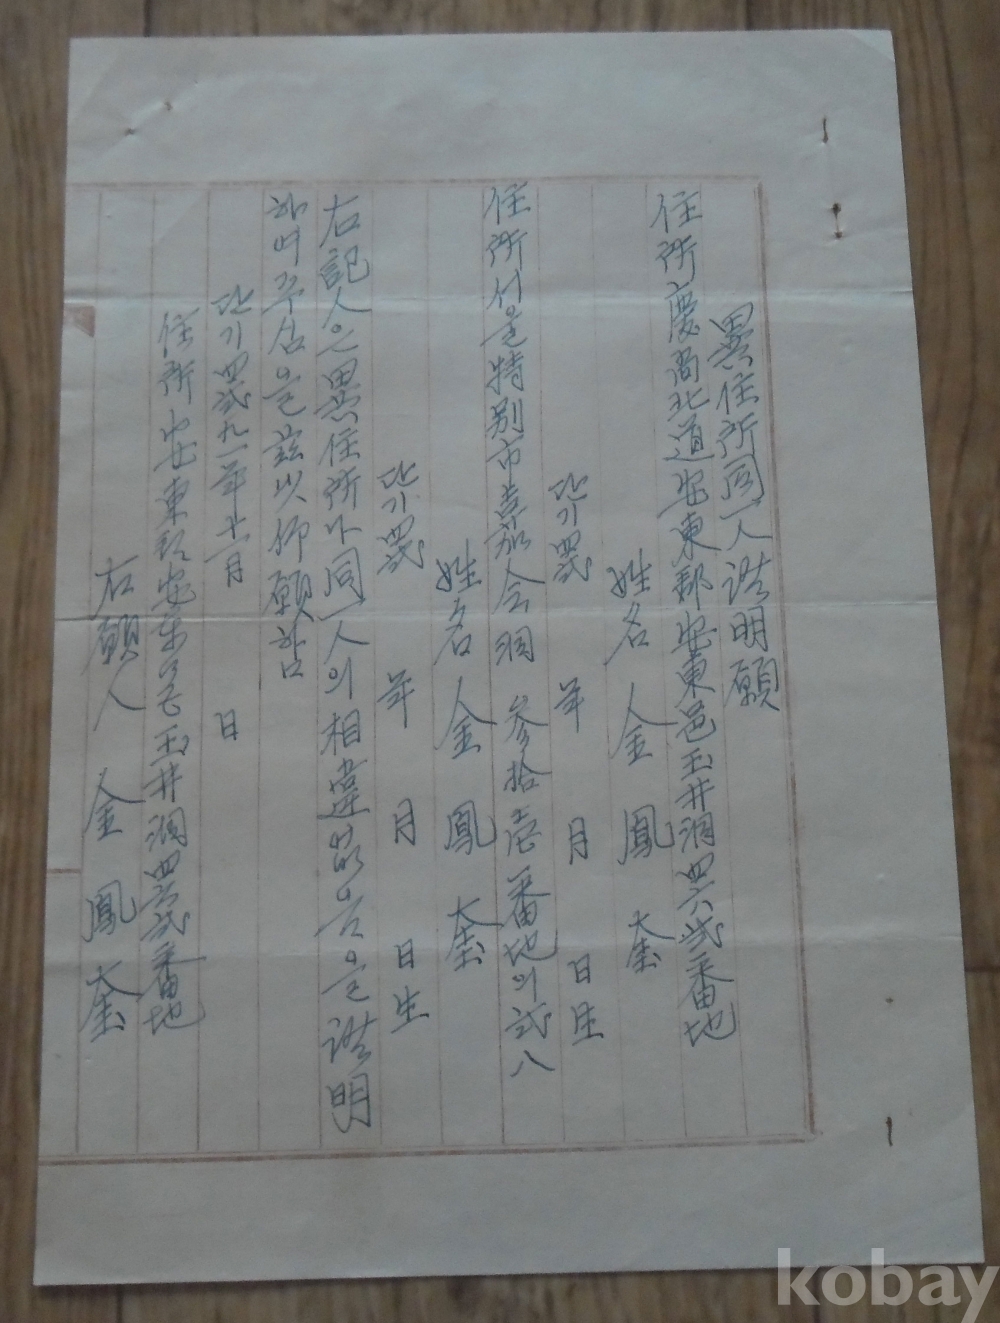 異住所同一人證明願
住所 慶尚北道安東郡安東邑玉井洞四六弐番地
姓名 金鳳
단기四弐 年 月 日生
住所 서울特別市 会洞 参拾壱番地의弐八
姓名 金鳳
단기四弐 年 月 日生
右記人은異住所나同一人의相違없음을證明
하여주심을玆以仰願함
단기四弐九一年十一月 日
住所 安東郡安東邑玉井洞四六弐番地
右願人 金鳳
kobay